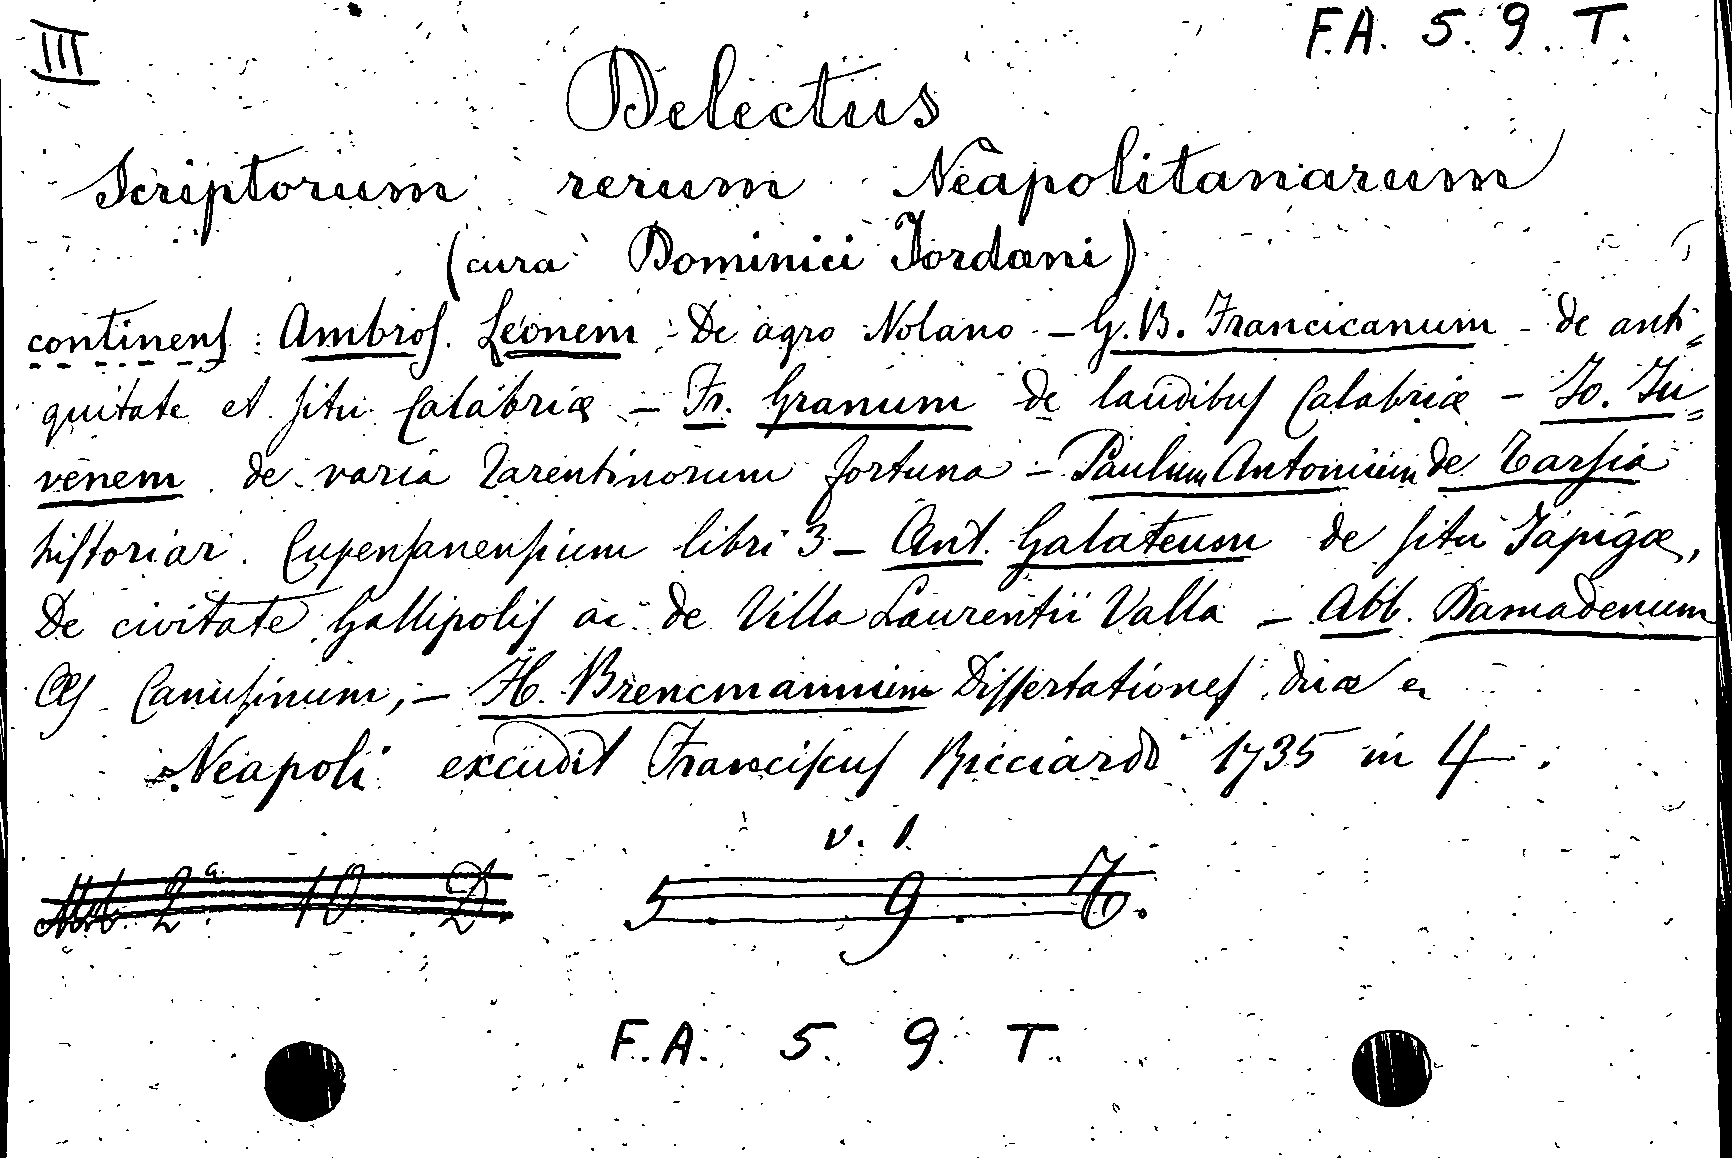 III
F.A. 5. 9. T.
Delectus
Scriptorum rerum Neapolitanarum
(cura Dominici Jordani)
continens : Ambros. Leonem - De agro Nolano - G.B. Francicanum - de anti=
quitate et situ Calabriæ - Fr. Granum de laudibus Calabriæ - Jo. Ju=
venem de varia Tarentinorum fortuna - Paulum Antonium de Tarsia
historiar. Cupersanensium libri 3 - Ant. Galateum de situ Japigæ,
De civitate Gallipolis ac de Villa Laurentii Valla - Abb. Damadenum
Æs Canusinum, - H. Brencmannum Dissertationes duæ
Neapoli excudit Franciscus Ricciardo 1735 in 4
v. 1.
2ª 10 D. 5. 9. T.
F.A. 5. 9. T.